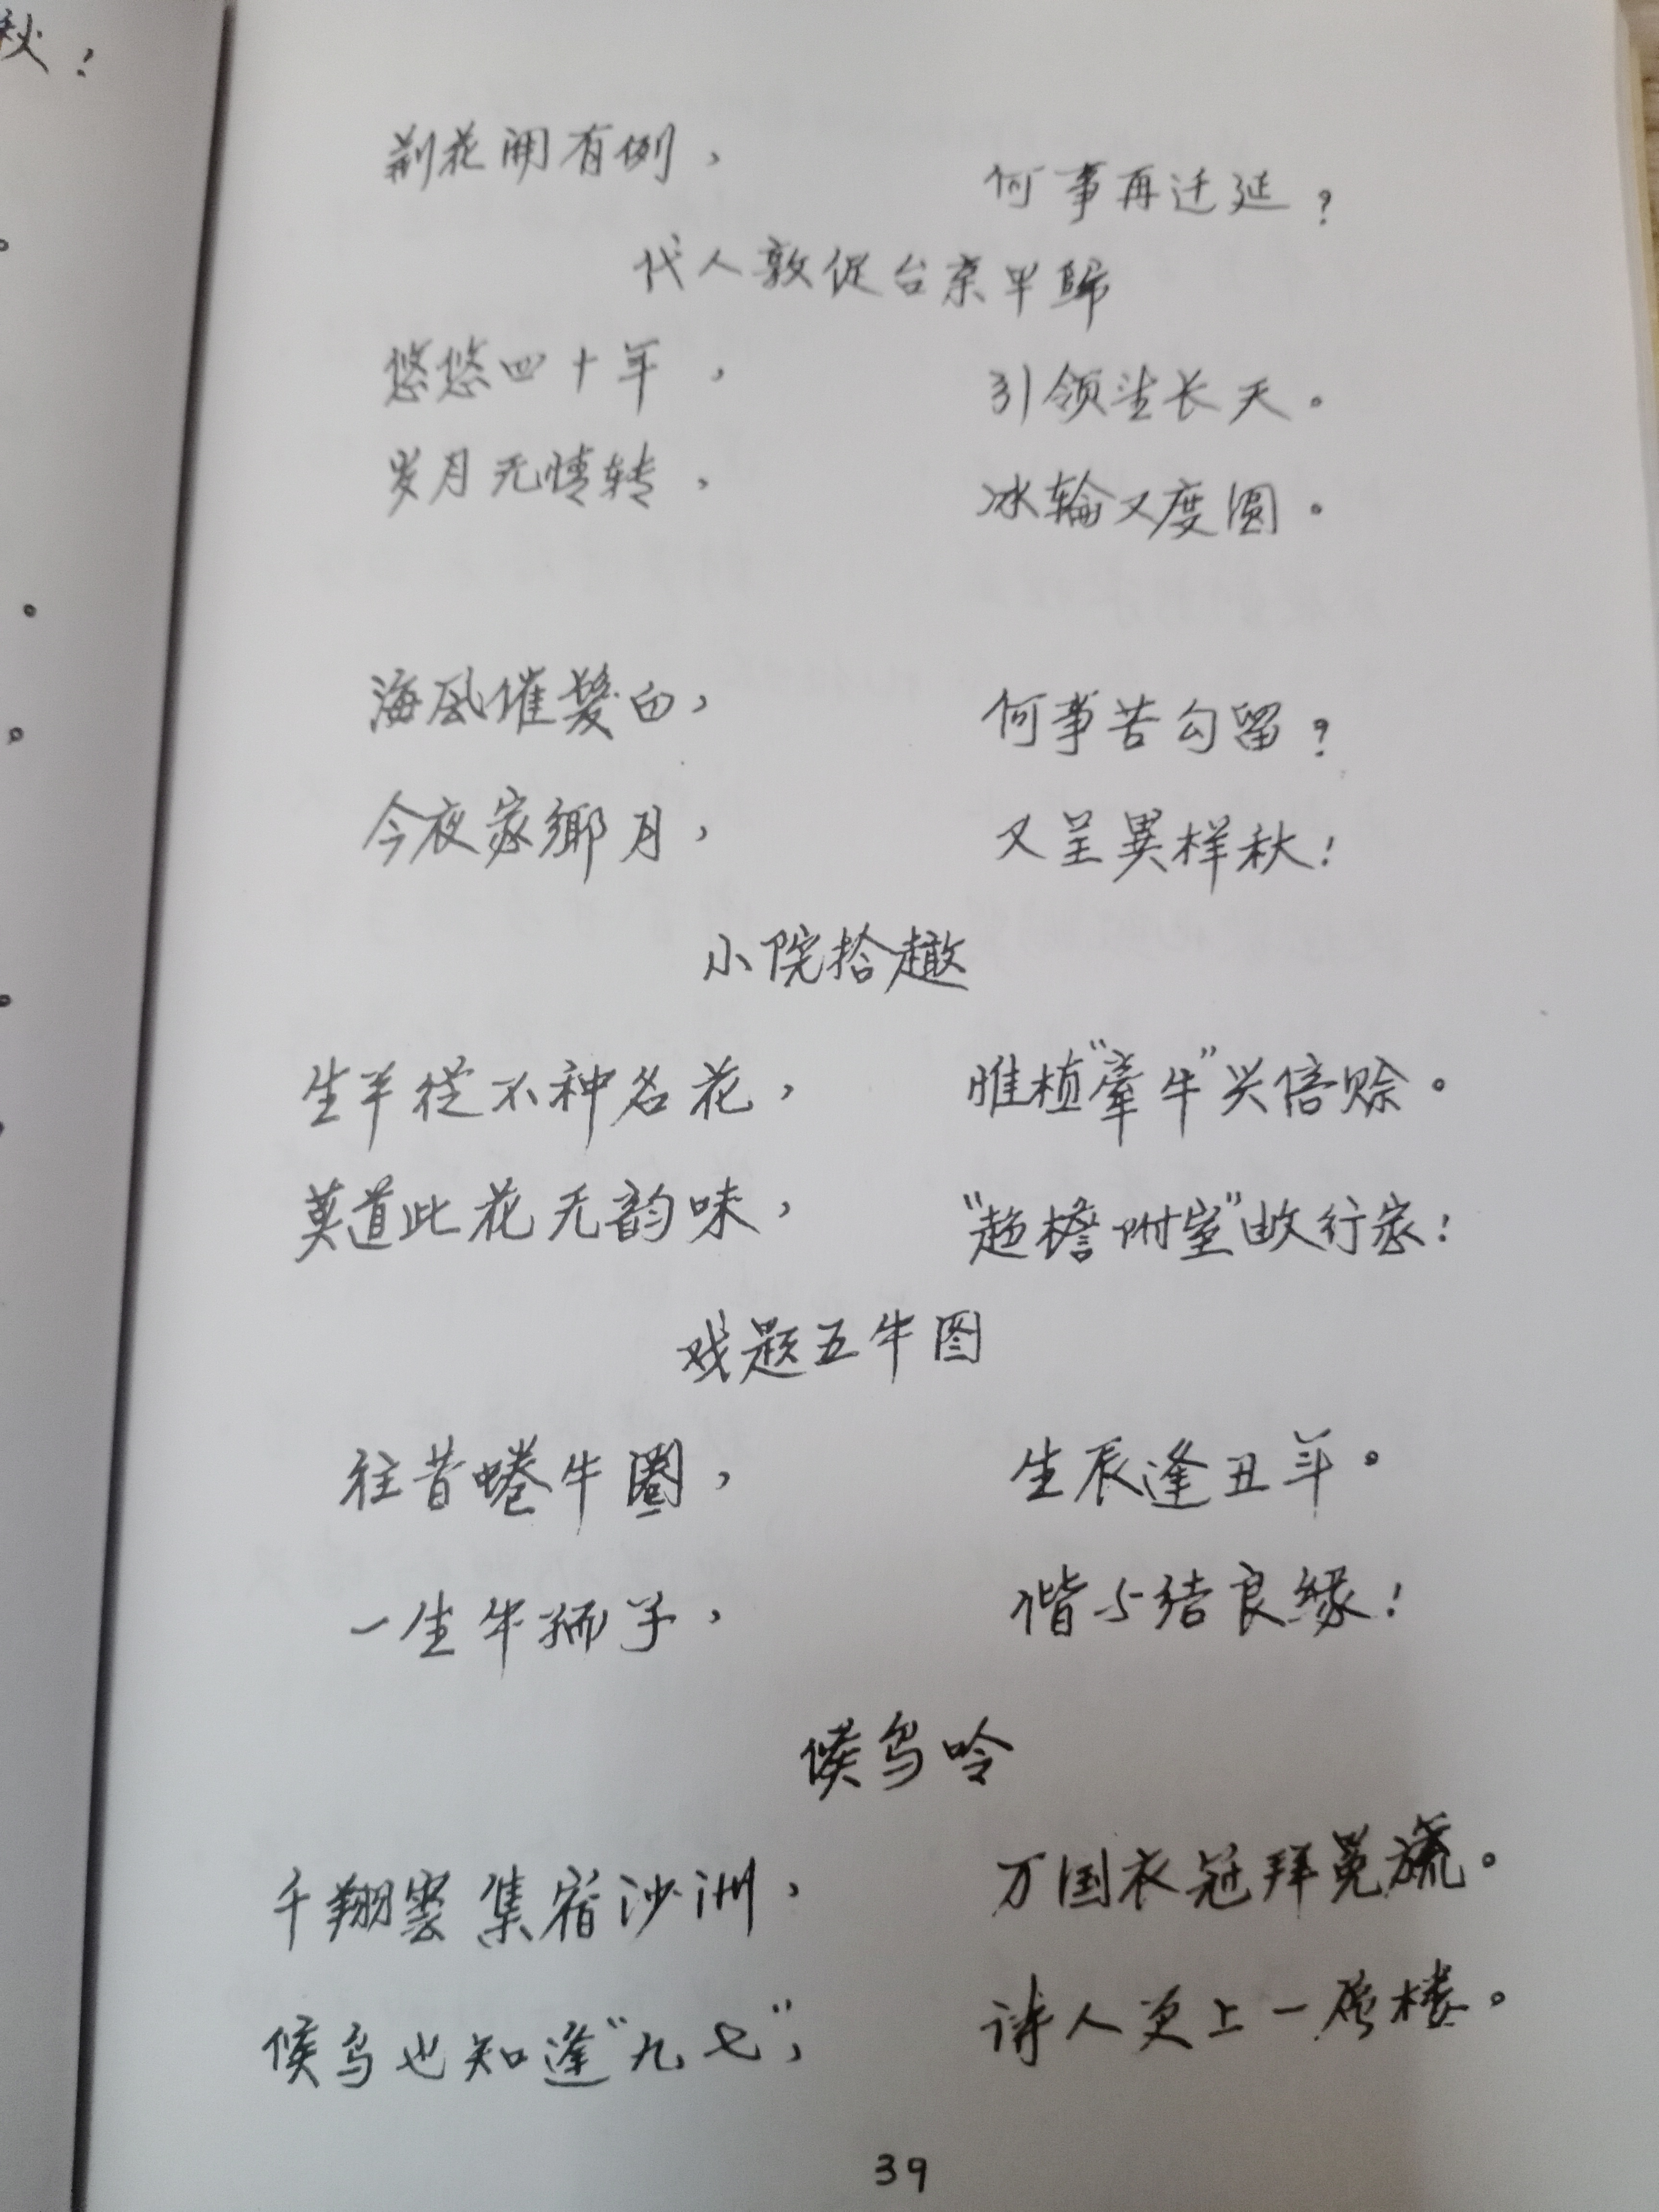 秋！
荆花開有例，　何事再迁延？
代人敦促台亲早歸
悠悠四十年，　引领望长天。
岁月无情转，　冰轮又度圆。
海风催髮白，　何事苦勾留？
今夜家鄉月，　又呈異样秋！
小院拾趣
生平從不种名花，　唯植“牽牛”兴倍赊。
莫道此花无韵味，　“趋檐附室”故行家！
戏题五牛图
往昔蜷牛圈，　生辰逢丑年。
一生牛孺子，　偕尔结良缘！
候鸟吟
千翔雲集宿沙洲，　万国衣冠拜冕旒。
候鸟也知逢“九七”，　诗人更上一层楼。
39